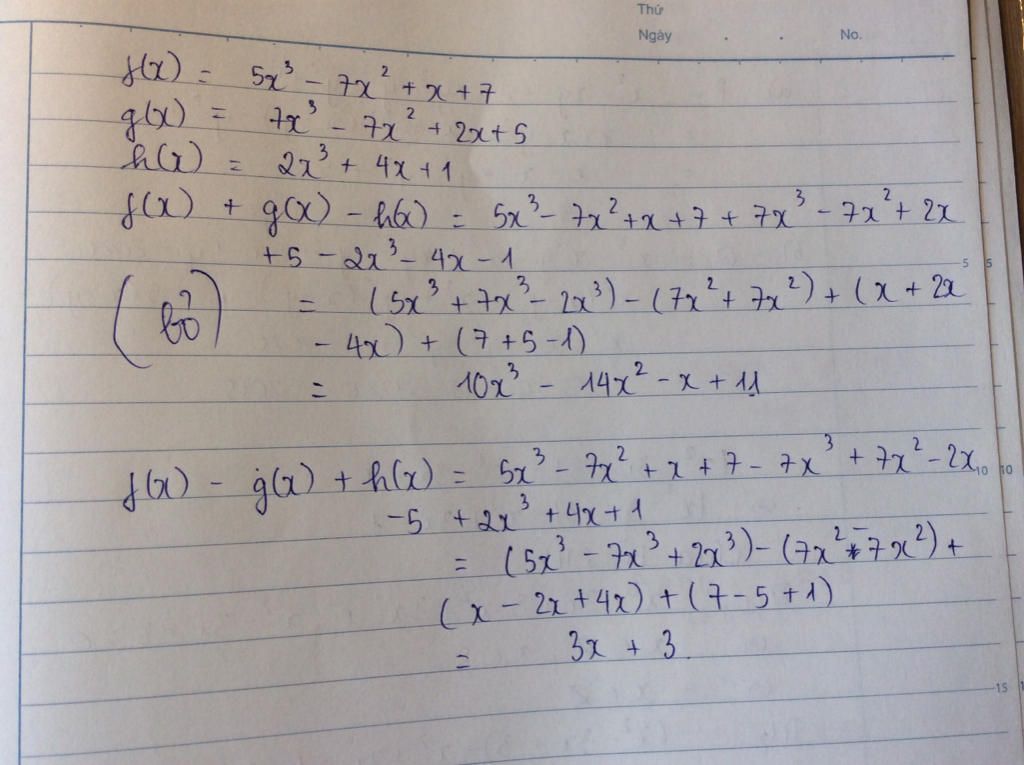 Thứ
Ngày . . No.
f(x) = 5x³ - 7x² + x + 7
g(x) = 7x³ - 7x² + 2x + 5
h(x) = 2x³ + 4x + 1
f(x) + g(x) - h(x) = 5x³ - 7x² + x + 7 + 7x³ - 7x² + 2x
+ 5 - 2x³ - 4x - 1
5 5
(bỏ) = (5x³ + 7x³ - 2x³) - (7x² + 7x²) + (x + 2x
- 4x) + (7 + 5 - 1)
= 10x³ - 14x² - x + 11
f(x) - g(x) + h(x) = 5x³ - 7x² + x + 7 - 7x³ + 7x² - 2x
10 10
-5 + 2x³ + 4x + 1
= (5x³ - 7x³ + 2x³) - (7x² - 7x²) +
(x - 2x + 4x) + (7 - 5 + 1)
= 3x + 3.
15 1